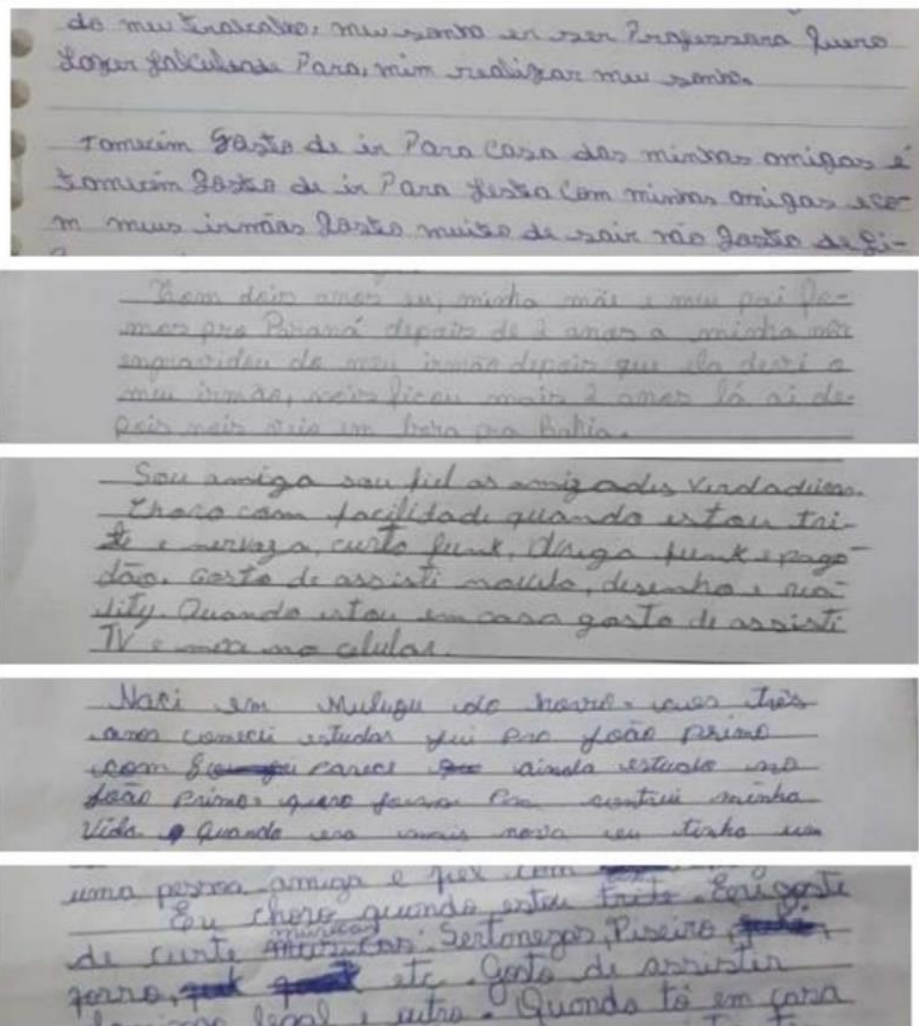 do meu trabalho, meu sonho er ser Professora Quero
Fazer faculdade Para, mim realizar meu sonho.
Tomeim gosto de ir Para casa das minhas amigas é
tomeim gosto de ir Para festa com minhas amigas eco-
m meus irmãos gosto muito de sair não gosto de fi-
Com dois anos eu, minha mãe e meu pai fo-
mos pra Paraná depois de 2 anos a minha mãe
engravidou do meu irmão depois que ela
meu irmão, nois ficou mais 2 anos lá ai de-
pois nois veio em bora pra Bahia.
Sou amiga sou fiel as amizades verdadeiras.
Choro com facilidade quando estou tri-
te e nervoza, curto funk, funk e pago-
dão. Gosto de assisti novela, desenho e rea-
lity. Quando estou em casa gosto de assisti
TV e mexe no celular.
Naci em Mulugu do três
anos comecei estudar fui pro João primo
com ainda estudo no
João Primo. quero minha
vida. Quando era mais nova eu tinha um
uma pessoa amiga e fiel com
Eu choro quando estou trite. Eeu goste
de curte músicas Sertonezas, Piseiro,
forro, etc. Gosto de assister
legal e outro. Quando tô em casa